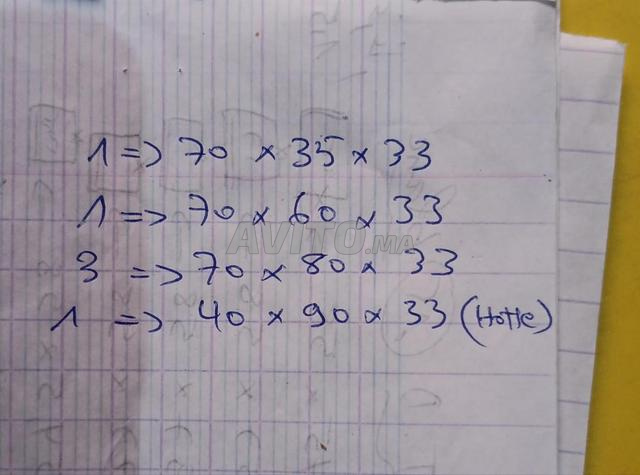 1 => 70 x 35 x 33
1 => 70 x 60 x 33
AVITO.MA
3 => 70 x 80 x 33
1 => 40 x 90 x 33 (Hotte)